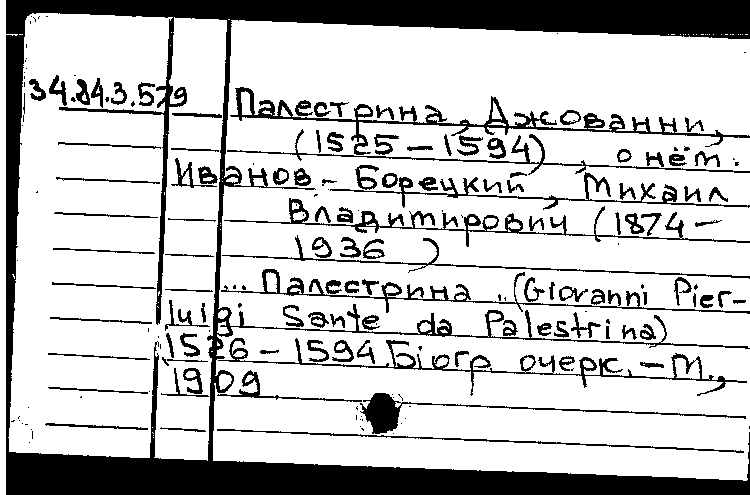 34.84.3.579 Палестрина, Джованни,
(1525-1594), о нём.
Иванов-Борецкий, Михаил
Владимирович (1874-
1936 )
... Палестрина "(Giovanni Pier-
luigi Sante da Palestrina)
(1526-1594. Бiогр. очерк. - М.,
1909